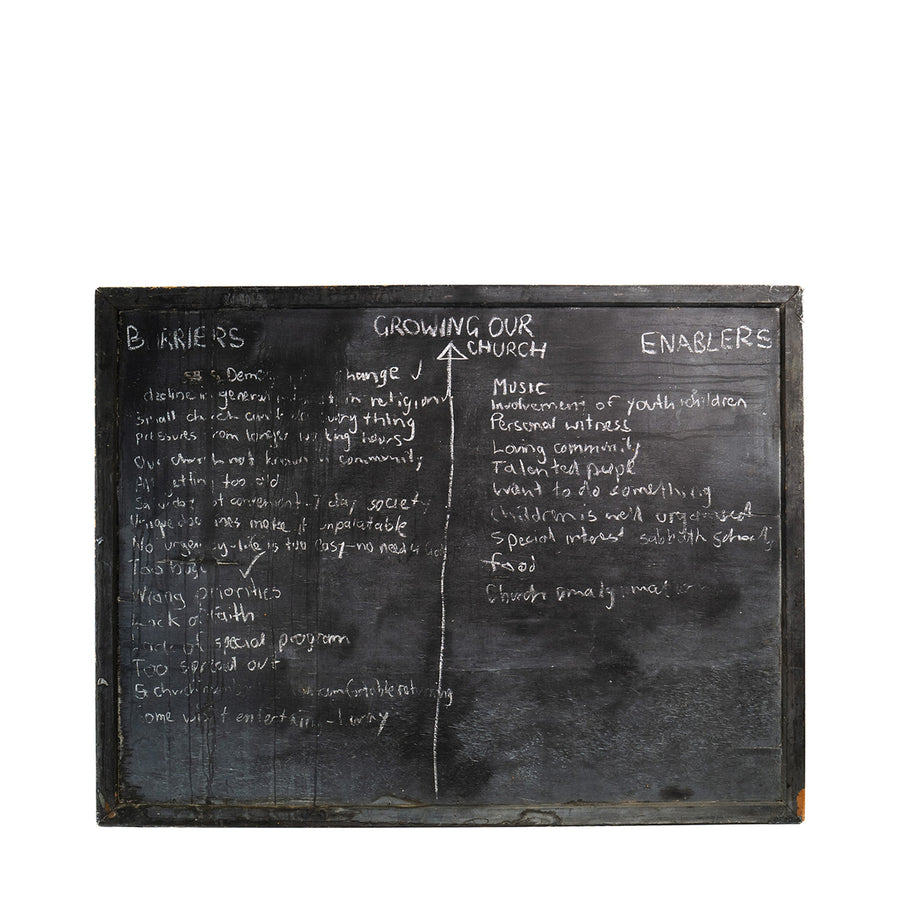 GROWING OUR
CHURCH
B RRIERS
Demo hange
decline in general in religion
Small church can't do everything
pressures from longer working hours
Our church not known in community
etting too old
Saturday not convenient - 7 day society
Unique doc ines make it unpalatable
No urgency - life is too easy - no need
Too busy
Wrong priorities
Lack of faith
Lack of special program
Too spread out
church returning
ome w t entertain
ENABLERS
MUSIC
Involvement of youth + children
Personal witness
Loving community
Talented people
Want to do something
Children is well organised
Special interest sabbath schools
food
Church